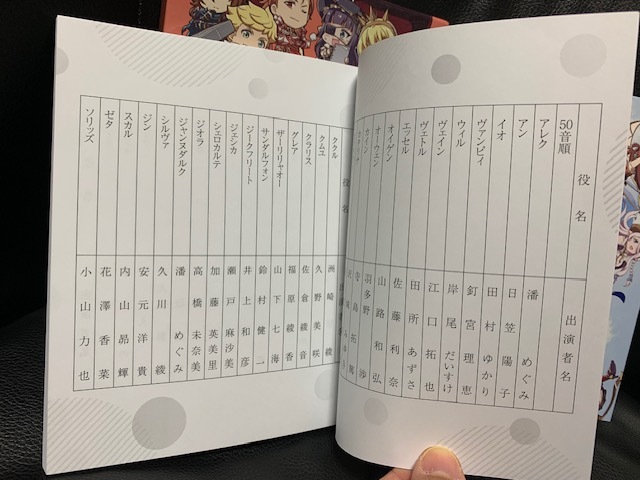 役名 出演者名
50音順
アレク 潘めぐみ
アン 日笠陽子
イオ 田村ゆかり
ヴァンピィ 釘宮理恵
ウィル 岸尾だいすけ
ヴェイン 江口拓也
ヴェトル 田所あずさ
エッセル 佐藤利奈
オイゲン 山路和弘
オーウェン 羽多野渉
カイン 寺島拓篤
役名
ククル 洲崎綾
クムユ 久野美咲
クラリス 佐倉綾音
グレア 福原綾香
ザーリリャオー 山下七海
サンダルフォン 鈴村健一
ジークフリート 井上和彦
ジェシカ 瀬戸麻沙美
シェロカルテ 加藤英美里
ジオラ 高橋未奈美
ジャンヌダルク 潘めぐみ
シルヴァ 久川綾
ジン 安元洋貴
スカル 内山昂輝
ゼタ 花澤香菜
ソリッズ 小山力也